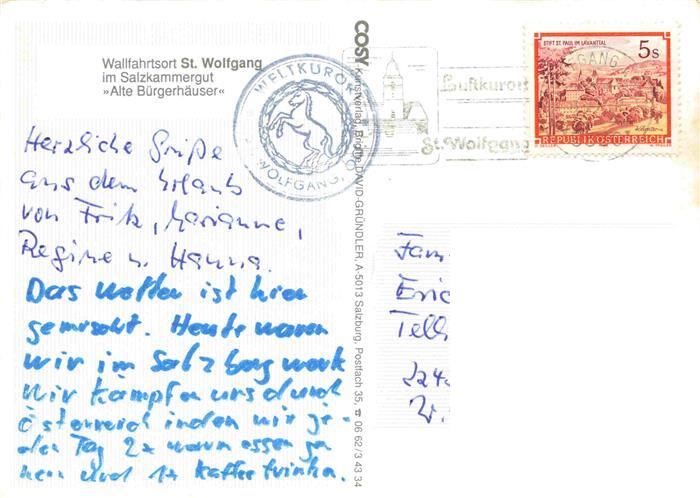 Wallfahrtsort St. Wolfgang
im Salzkammergut
»Alte Bürgerhäuser«
Herzliche Grüße
aus dem Urlaub
von Fritz, Marianne,
Regine u. Hanna.
Das wetter ist hier
gemischt. Heute waren
wir im Salzberg werk
wir kämpfen uns durch
Österreich inden wir je-
den Tag 2x warm essen ge
hen und 1x Kaffee trinken.
COSY Kunstverlag, Brigitte DAVID-GRÜNDLER, A-5013 Salzburg, Postfach 35, ☎ 06 62/3 43 34
WELTKURORT
WOLFGANG
Luftkurort
St. Wolfgang
STIFT ST. PAUL IM LAVANTTAL
5s
REPUBLIK ÖSTERREICH
Fam
Eric
Tell